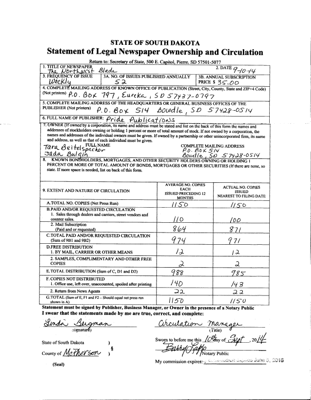 STATE OF SOUTH DAKOTA
Statement of Legal Newspaper Ownership and Circulation
Return to: Secretary of State, 500 E. Capitol, Pierre, SD 57501-5077
1. TITLE OF NEWSPAPER
The Northwest Blade
2. DATE 9-10-14
3. FREQUENCY OF ISSUE
Weekly
3A. NO. OF ISSUES PUBLISHED ANNUALLY
52
3B. ANNUAL SUBSCRIPTION
PRICE $ 35.00
4. COMPLETE MAILING ADDRESS OF KNOWN OFFICE OF PUBLICATION (Street, City, County, State and ZIP+4 Code)
(Not printers) P.O. Box 797, Eureka, SD 57437-0797
5. COMPLETE MAILING ADDRESS OF THE HEADQUARTERS OR GENERAL BUSINESS OFFICES OF THE
PUBLISHER (Not printer) P.O. Box 514 Bowdle, SD 57428-0514
6. FULL NAME OF PUBLISHER: Pride Publications
7. OWNER (If owned by a corporation, its name and address must be stated and also on the back of this form the names and
addresses of stockholders owning or holding 1 percent or more of total amount of stock. If not owned by a corporation, the
names and addresses of the individual owners must be given. If owned by a partnership or other unincorporated firm, its name
and address, as well as that of each individual must be given.
FULL NAME
COMPLETE MAILING ADDRESS
Tara Beitelspacher
P.O. Box 514
Bowdle, SD 57428-0514
8. KNOWN BONDHOLDERS, MORTGAGEES, AND OTHER SECURITY HOLDERS OWNING OR HOLDING 1
PERCENT OR MORE OF TOTAL AMOUNT OF BONDS, MORTGAGES OR OTHER SECURITIES (If there are none, so
state. If more space is needed, list on back of this form.
9. EXTENT AND NATURE OF CIRCULATION
AVERAGE NO. COPIES
EACH
ISSUED PRECEDING 12
MONTHS
ACTUAL NO. COPIES
ISSUED
NEAREST TO FILING DATE
A. TOTAL NO. COPIES (Net Press Run) 1150 1150
B. PAID AND/OR REQUESTED CIRCULATION
1. Sales through dealers and carriers, street vendors and
counter sales. 110 100
2. Mail Subscription
(Paid and or requested) 864 871
C. TOTAL PAID AND/OR REQUESTED CIRCULATION
(Sum of 9B1 and 9B2) 974 971
D. FREE DISTRIBUTION
1. BY MAIL, CARRIER OR OTHER MEANS 12 12
2. SAMPLES, COMPLIMENTARY AND OTHER FREE
COPIES 2 2
E. TOTAL DISTRIBUTION (Sum of C, D1 and D2) 988 985
F. COPIES NOT DISTRIBUTED
1. Office use, left over, unaccounted, spoiled after printing 140 143
2. Return from News Agents 22 22
G. TOTAL (Sum of E, F1 and F2 - Should equal net press run
shown in A) 1150 1150
Statement must be signed by Publisher, Business Manager, or Owner in the presence of a Notary Public
I swear that the statements made by me are true, correct, and complete:
Bergman Circulation Manager
(signature) (Title)
State of South Dakota )
Sworn to before me this 10th day of Sept, 2014
§
County of McPherson )
Notary Public
(Seal)
My commission expires: